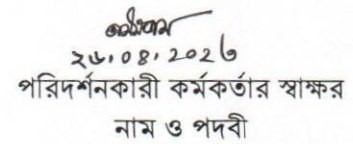 ২৬.০৪.২০২৬
পরিদর্শনকারী কর্মকর্তার স্বাক্ষর
নাম ও পদবী